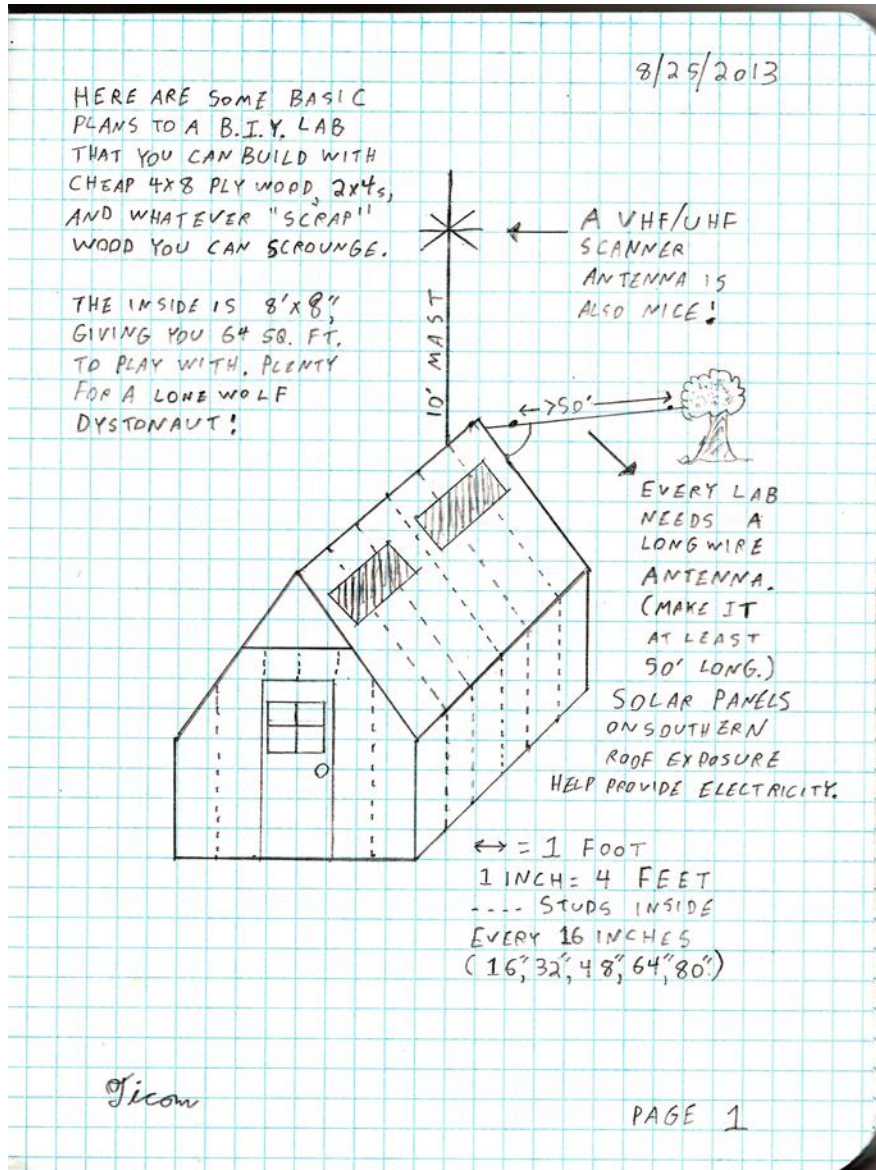 8/25/2013
HERE ARE SOME BASIC
PLANS TO A B.I.Y. LAB
THAT YOU CAN BUILD WITH
CHEAP 4X8 PLY WOOD, 2x4s,
AND WHATEVER "SCRAP"
WOOD YOU CAN SCROUNGE.
THE INSIDE IS 8'X8",
GIVING YOU 64 SQ. FT.
TO PLAY WITH. PLENTY
FOR A LONE WOLF
DYSTONAUT!
A VHF/UHF
SCANNER
ANTENNA IS
ALSO NICE!
10' MAST
<->50'
EVERY LAB
NEEDS A
LONGWIRE
ANTENNA.
(MAKE IT
AT LEAST
50' LONG.)
SOLAR PANELS
ON SOUTHERN
ROOF EXPOSURE
HELP PROVIDE ELECTRICITY.
↔ = 1 FOOT
1 INCH = 4 FEET
---- STUDS INSIDE
EVERY 16 INCHES
(16", 32", 48", 64", 80".)
Ticom
PAGE 1